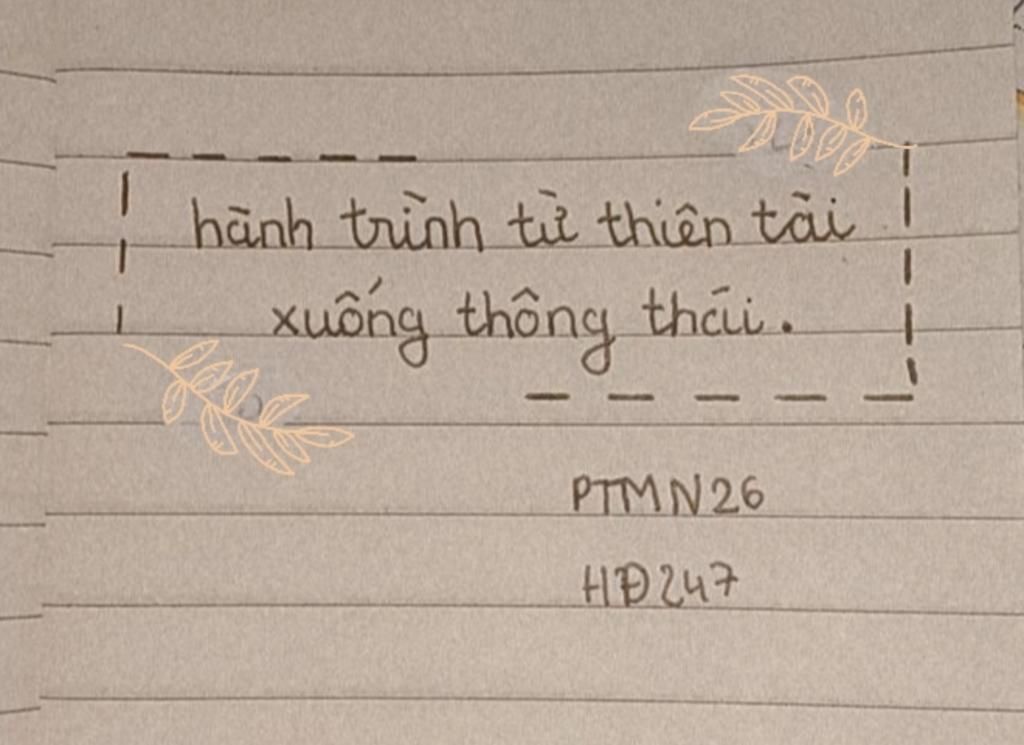 hành trình từ thiên tài
xuống thông thái.
PTMN26
HĐ247